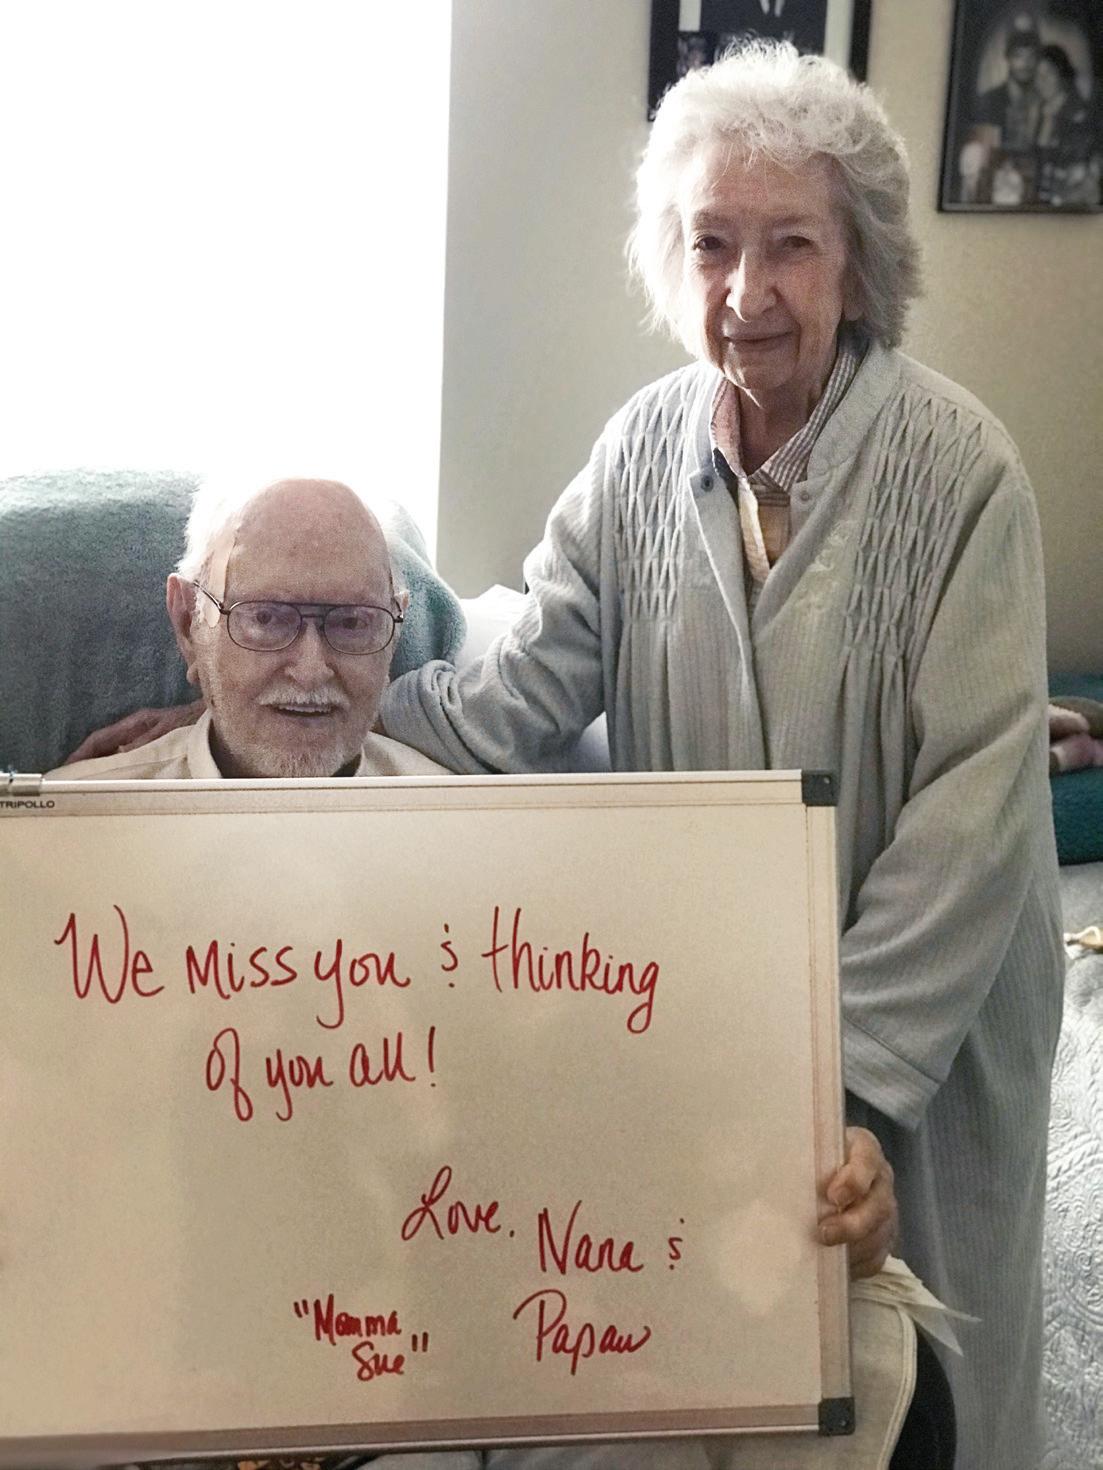 TRIPOLLO
We miss you & thinking
of you all!
Love, Nana &
"Momma Sue" Papaw